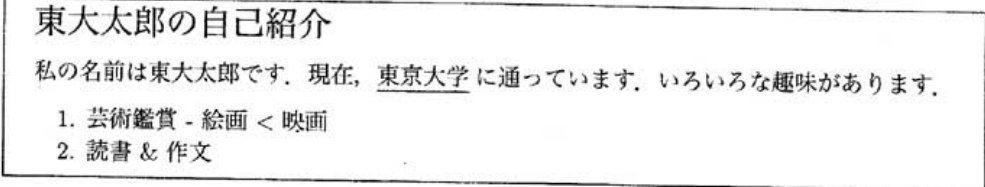 東大太郎の自己紹介
私の名前は東大太郎です．現在，東京大学に通っています．いろいろな趣味があります．
1. 芸術鑑賞 - 絵画 < 映画
2. 読書 & 作文